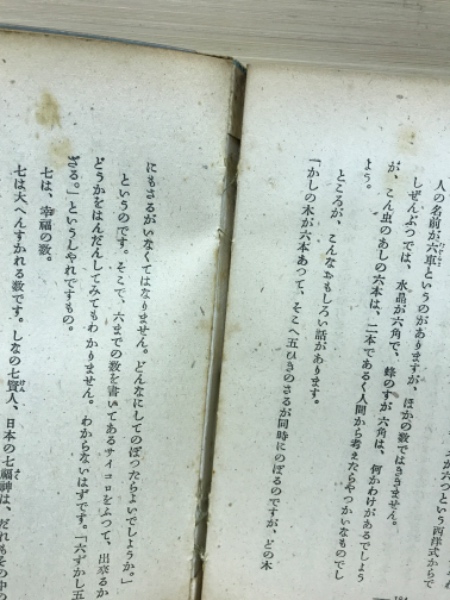 が六つという西洋式からで
人の名前が六車というのがありますが、ほかの数ではききません。
しぜんぶつでは、水晶が六角で、蜂のすが六角は、何かわけがあるでしょう
が、こん虫のあしの六本は、二本であるく人間から考えたらやっかいなものでし
よう。
ところが、こんなおもしろい話があります。
「かしの木が六本あって、そこへ五ひきのさるが同時にのぼるのですが、どの木
にもさるがいなくてはなりません。どんなにしてのぼったらよいでしょうか。」
というのです。そこで、六までの数を書いてあるサイコロをふって、出来るか
どうかをはんだんしてみてもわかりません。わからないはずです。「六ずかし五
ざる。」というしゃれですもの。
七は、幸福の数。
七は大へんすかれる数です。しなの七賢人、日本の七福神は、だれもその中の